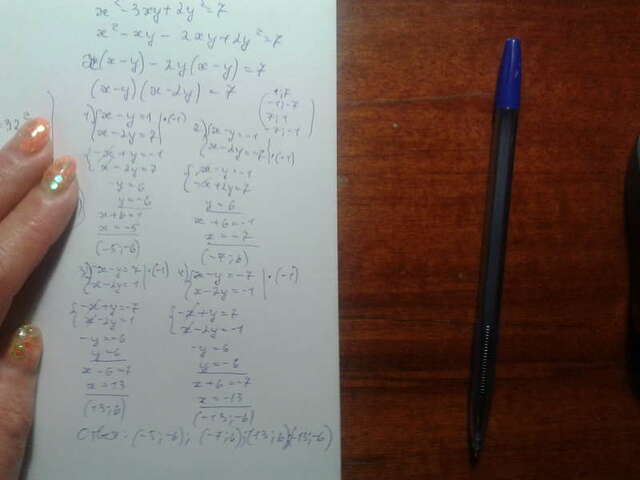 x² - 3xy + 2y² = 7
x² - xy - 2xy + 2y² = 7
x(x-y) - 2y(x-y) = 7
(x-y)(x-2y) = 7
1; 7
-1; -7
7; 1
-7; -1
1) x-y=1 | ·(-1)
x-2y=7
-x+y=-1
x-2y=7
-y=6
y=-6
x+6=1
x=-5
(-5;-6)
2) x-y=-1
x-2y=-7 | ·(-1)
x-y=-1
-x+2y=7
y=6
x+6=-1
x=-7
(-7;6)
3) x-y=7 | ·(-1)
x-2y=1
-x+y=-7
x-2y=1
-y=-6
y=6
x-6=7
x=13
(13;6)
4) x-y=-7 | ·(-1)
x-2y=-1
-x+y=7
x-2y=-1
-y=6
y=-6
x+6=-7
x=-13
(-13;-6)
Ответ: (-5;-6); (-7;6); (13;6)(-13;-6)